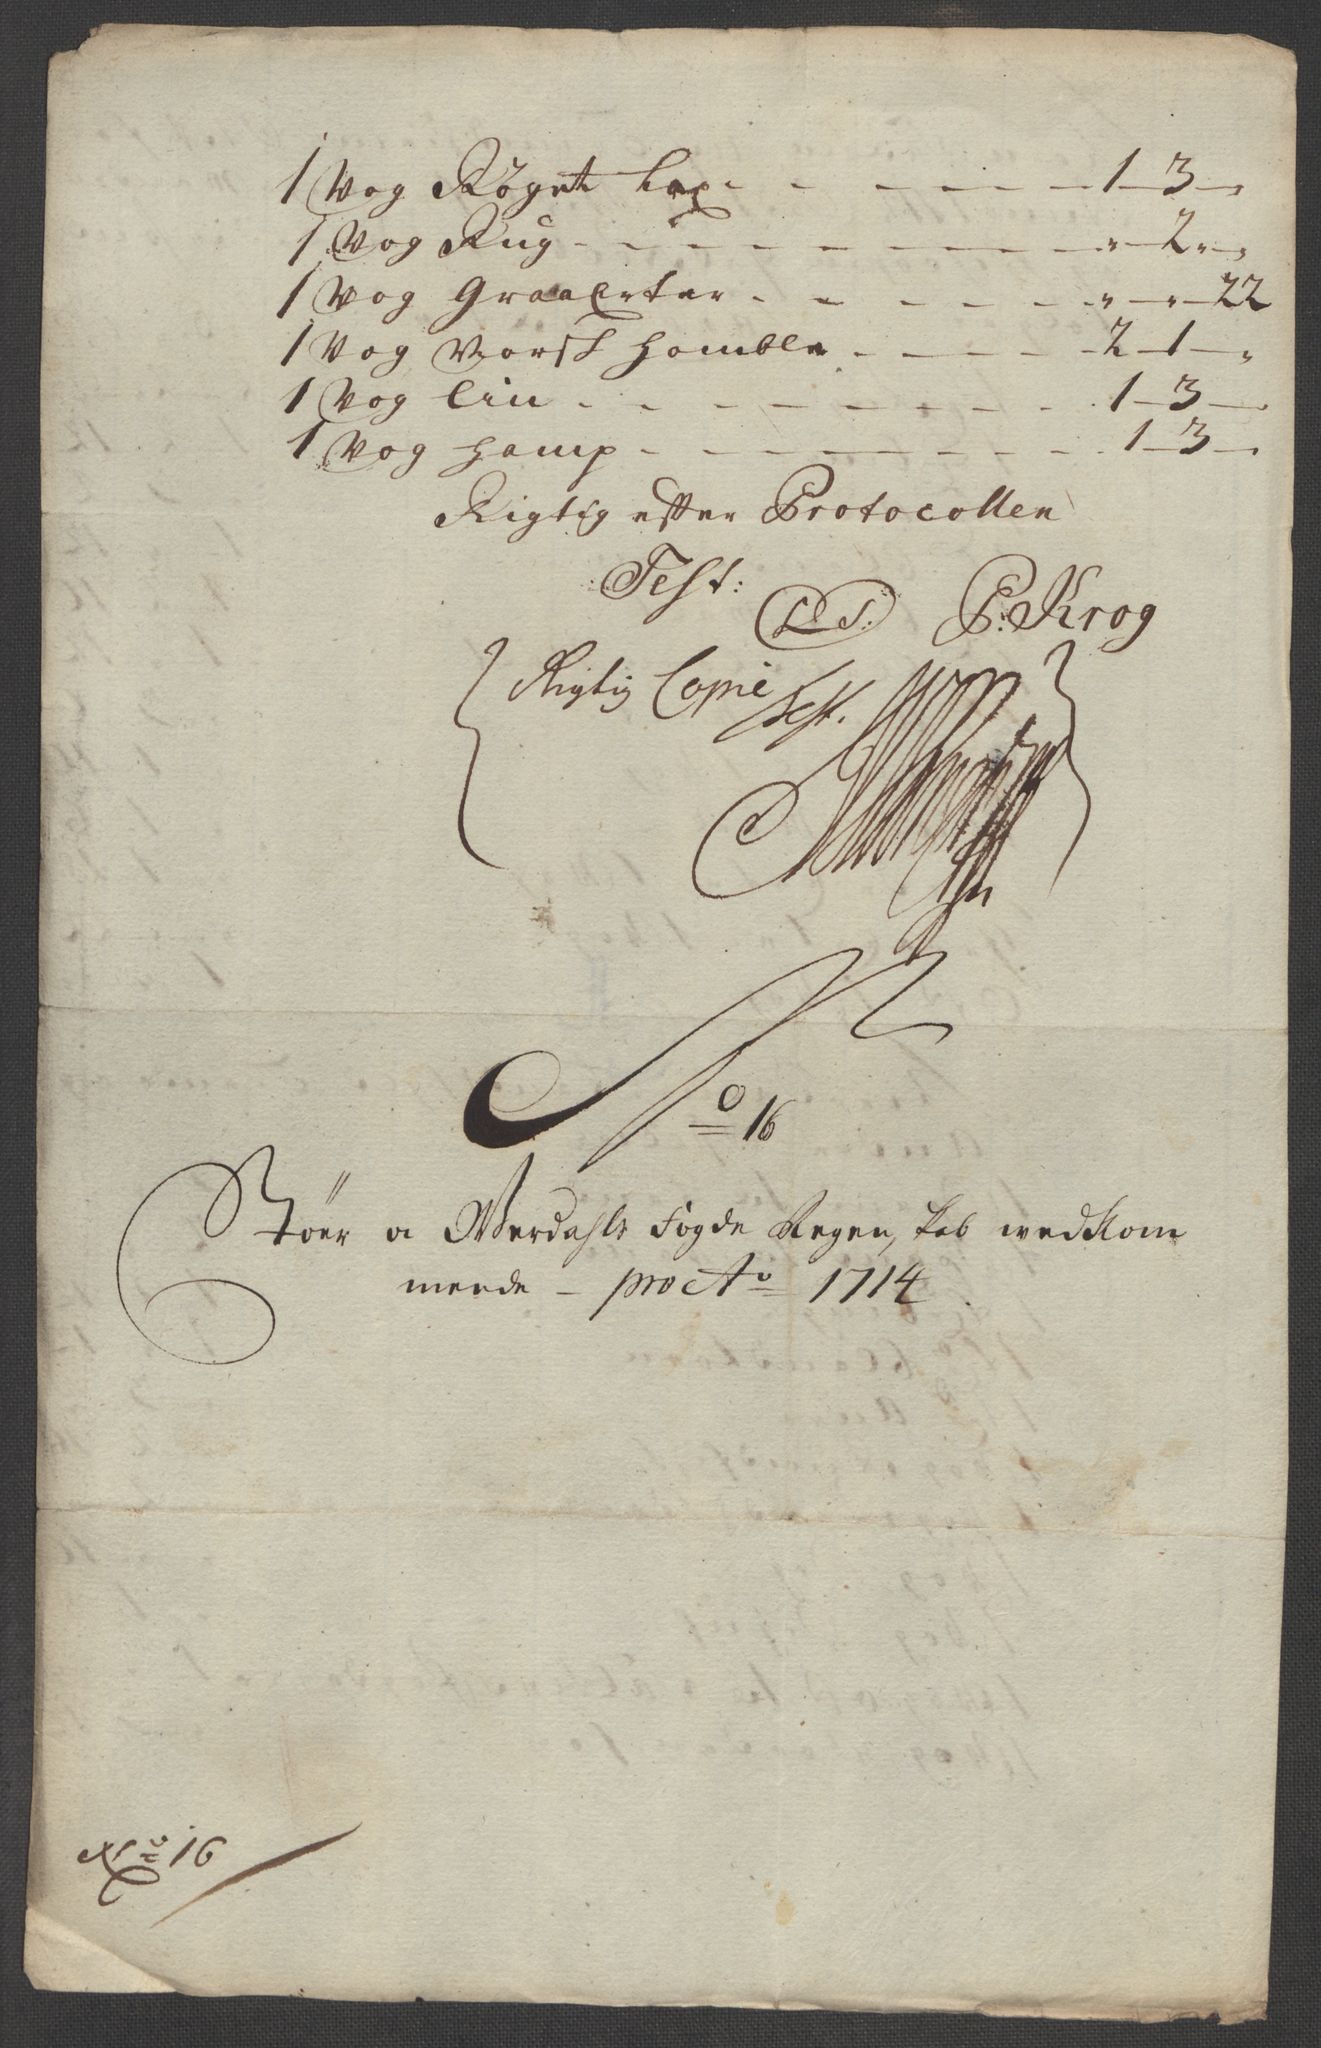 1 Vog Røget Lax - - - - - 1 - 3 - „
1 Vog Rug - - - - - - - „ - 2 „ - „
1 Vog Graaerter - - - - - „ - „ - 22
1 Vog Norsk Homble - - - - 2 - 1 - „
1 Vog Lin - - - - - - - - 1 - 3 -
1 Vog Hamp - - - - - - - 1 - 3 -
Rigtig efter Protocollen
Test:
L S: P: Krog
Rigtig Copie
Test.
No 16
Stöer og Werdahls Fogde Regen, skab wedkom
mende - pro Ao 1714
No 16